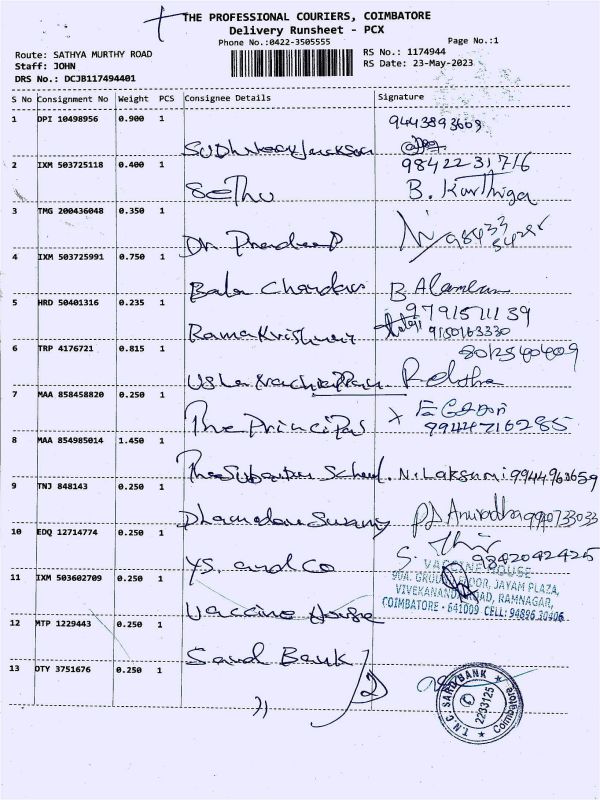 THE PROFESSIONAL COURIERS, COIMBATORE
Delivery Runsheet - PCX
Phone No.:0422-3505555 Page No.:1
Route: SATHYA MURTHY ROAD RS No.: 1174944
Staff: JOHN RS Date: 23-May-2023
DRS No.: DCJB117494401
S No Consignment No Weight PCS Consignee Details Signature
1 DPI 10498956 0.900 1
9443893609
2 IXM 503725118 0.400 1 9842231716
Sethu B. Karthiga
3 TMG 200436048 0.350 1
Dr. Pradeep
4 IXM 503725991 0.750 1
Bala
5 HRD 50401316 0.235 1 9791571139
Ramakrishnan 9150163330
6 TRP 4176721 0.815 1
Usha
7 MAA 858458820 0.250 1
The Principal 9944716285
8 MAA 854985014 1.450 1
The School. N. Laksmi
9 TNJ 848143 0.250 1
Anuradha
10 EDQ 12714774 0.250 1
YS. and Co 9842042425
11 IXM 503602709 0.250 1 VACCINE HOUSE
90A, FLOOR, JAYAM PLAZA,
VIVEKANANDA ROAD, RAMNAGAR,
Vaccine House COIMBATORE - 641009 CELL: 94896 30406
12 MTP 1229443 0.250 1
Sard Bank
13 DTY 3751676 0.250 1
T.N.C. SARD BANK
2233125
Coimbatore